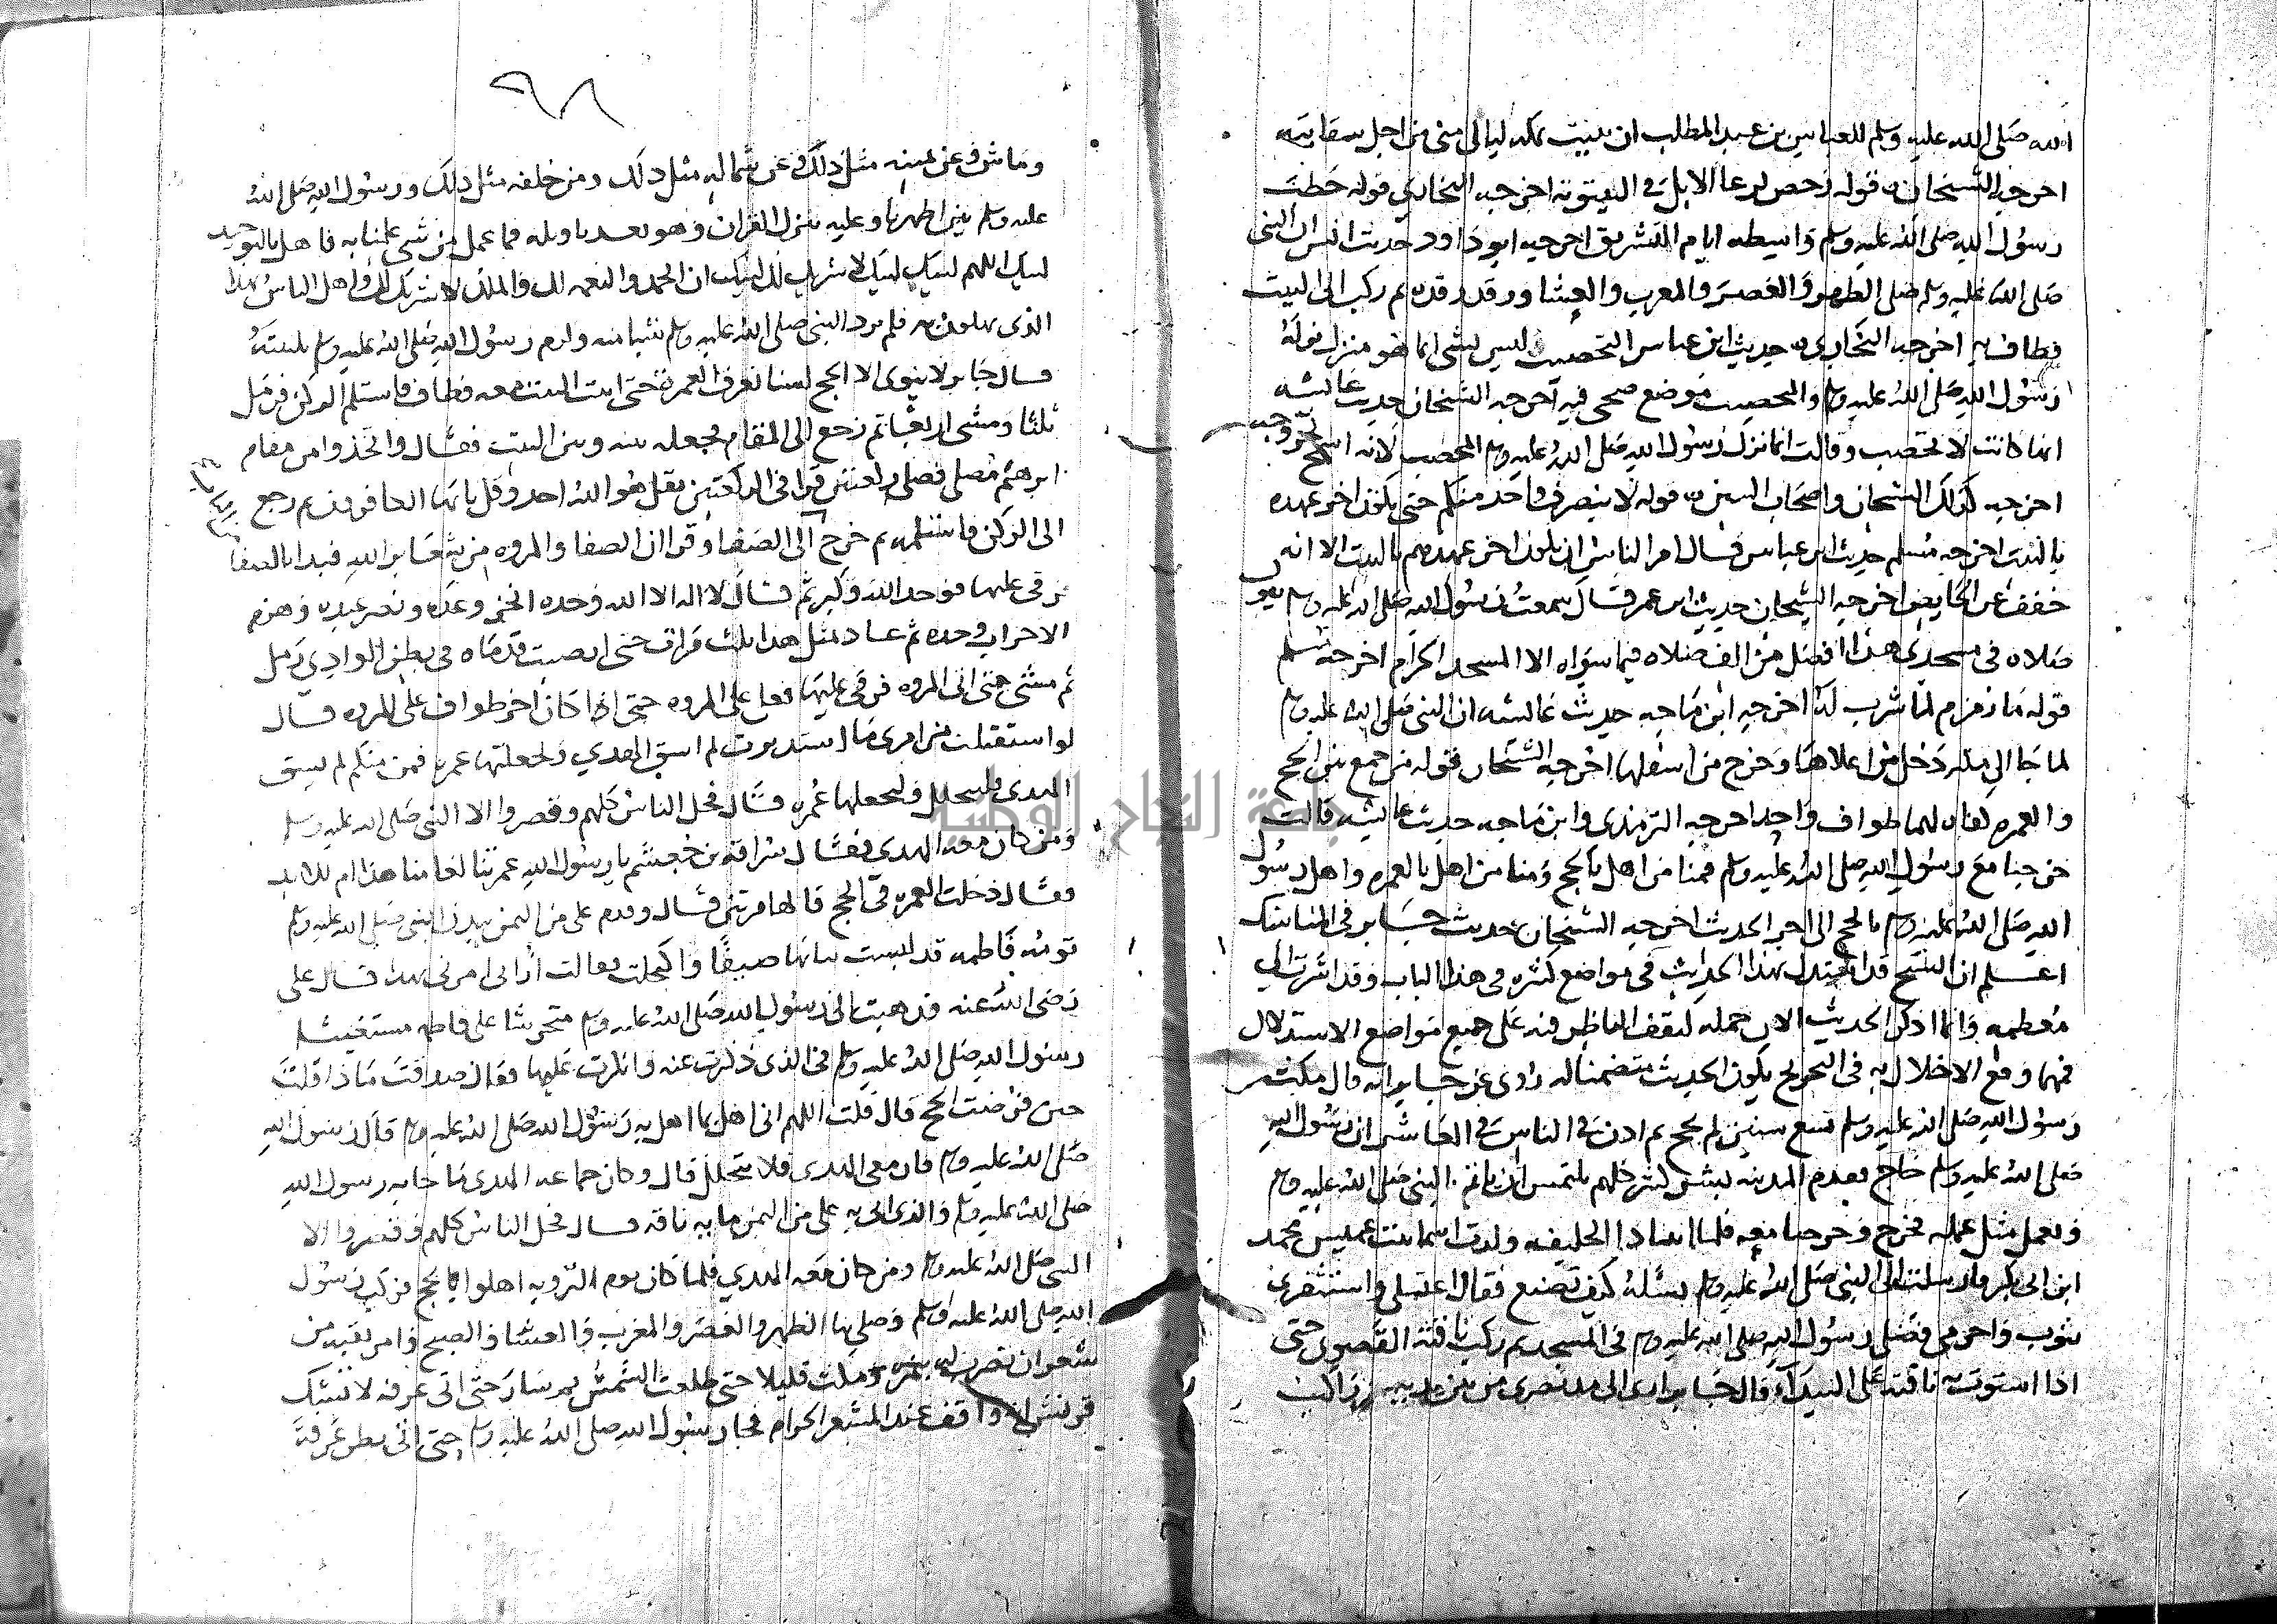 الله صلى الله عليه وسلم للعباس بن عبد المطلب ان يبيت بمكه ليالى منى من اجل سقايته
اخرجه الشيخان قوله رخص لرعا الابل في البيتوته اخرجه البخاري قوله خطب
رسول الله صلى الله عليه وسلم واسطه ايام التشريق اخرجه ابو داود حديث انس ان النبى
صلى الله عليه وسلم صلى الظهر والعصر والمغرب والعشا ورقد رقده ثم ركب الى البيت
فطاف به اخرجه البخاري حديث ابن عباس التحصيب ليس بشى انما هو منزل نزله
رسول الله صلى الله عليه وسلم والمحصب موضع صحى فيه اخرجه الشيخان حديث عائشه
انها كانت لا تحصب وقالت انما نزل رسول الله صلى الله عليه وسلم المحصب لانه اسمح لخروجه
اخرجه كذلك الشيخان واصحاب السنن قوله لا ينصرف واحد منكم حتى يكون اخر عهده
بالبيت اخرجه مسلم حديث ابن عباس قال امر الناس ان يكون اخر عهدهم بالبيت الا انه
خفف عن الحايض اخرجه الشيخان حديث ابن عمر قال سمعت رسول الله صلى الله عليه وسلم يقول
صلاه في مسجدي هذا افضل من الف صلاه فيما سواه الا المسجد الحرام اخرجه مسلم
قوله ما زمزم لما شرب له اخرجه ابن ماجه حديث عائشه ان النبى صلى الله عليه وسلم
لما جا الى مكه دخل من اعلاها وخرج من اسفلها اخرجه الشيخان قوله من جمع بين الحج
والعمره كفاه لهما طواف واحد اخرجه الترمذى وابن ماجه حديث عائشه قالت
خرجنا مع رسول الله صلى الله عليه وسلم فمنا من اهل بالحج ومنا من اهل بالعمره واهل رسول
الله صلى الله عليه وسلم بالحج الى اخر الحديث اخرجه الشيخان حديث جابر في المناسك
اعلم ان الشيخ قد استدل بهذا الحديث في مواضع كثيره في هذا الباب وقد اشرت الى
معظمه وانما اذكر الحديث الان جمله ليقف الناظر فيه على جميع مواضع الاستدلال
فمهما وقع الاخلال به في التخريج يكون الحديث متضمنا له روى عن جابر انه قال مكث
رسول الله صلى الله عليه وسلم تسع سنين لم يحج ثم اذن في الناس في العاشر ان رسول الله
صلى الله عليه وسلم حاج فقدم المدينه بشر كثير كلهم يلتمس ان ياتم بالنبى صلى الله عليه وسلم
ويعمل مثل عمله فخرج وخرجنا معه فلما اتينا ذا الحليفه ولدت اسما بنت عميس محمد
ابن ابى بكر فارسلت الى النبى صلى الله عليه وسلم تسئله كيف تصنع فقال اغتسلى واستثفرى
بثوب واحرمى فصلى رسول الله صلى الله عليه وسلم في المسجد ثم ركب ناقته القصوى حتى
اذا استوت به ناقته على البيداء قال جابر ارى الى مد بصرى من بين يديه من راكب
٩٨
وماش وعن يمينه مثل ذلك وعن شماله مثل ذلك ومن خلفه مثل ذلك ورسول الله صلى الله
عليه وسلم بين اظهرنا وعليه ينزل القران وهو يعرف تاويله فما عمل من شى عملنا به فاهل بالتوحيد
لبيك اللهم لبيك لبيك لا شريك لك لبيك ان الحمد والنعمه لك والملك لا شريك لك واهل الناس بهذا
الذى يهلون به فلم يرد النبى صلى الله عليه وسلم شيا منه ولزم رسول الله صلى الله عليه وسلم تلبيته
قال جابر لا ينوى الا الحج لسنا نعرف العمره حتى اتيت البيت معه فطاف فاستلم الركن فرمل
ثلثا ومشى اربعا ثم رجع الى المقام فجعله بينه وبين البيت فقال واتخذوا من مقام
ابرهيم مصلى فصلى ركعتين قرا في الركعتين بقل هو الله احد وقل يايها الكافرون ثم رجع
الى الركن فاستلمه ثم خرج الى الصفا وقرا ان الصفا والمروه من شعاير الله فبدا بالصفا
فرقى عليها فوحد الله وكبر ثم قال لا اله الا الله وحده انجز وعده ونصر عبده وهزم
الاحزاب وحده ثم عاد مثل هذا ثلث مرات حتى انصبت قدماه في بطن الوادي رمل
ثم مشى حتى اتى المروه فرقى عليها ففعل على المروه حتى اذا كان اخر طواف على المروه قال
لو استقبلت من امرى ما استدبرت لم اسق الهدي ولجعلتها عمره فمن منكم لم يسق
الهدى فليتحلل وليجعلها عمره قال فحل الناس كلهم وقصروا الا النبى صلى الله عليه وسلم
ومن كان معه الهدى فقال سراقه بن جعشم يا رسول الله عمرتنا لعامنا هذا ام للابد
فقال دخلت العمره في الحج قالها مرتين قال وقدم على من اليمن ببدن النبى صلى الله عليه وسلم
فاطمه قد لبست ثيابها صبيغا واكتحلت فقالت ان ابى امرنى بهذا قال على
رضى الله عنه فذهبت الى رسول الله صلى الله عليه وسلم متحرشا على فاطمه
رسول الله صلى الله عليه وسلم في الذى ذكرت عنه وانكرت عليها فقال صدقت ماذا قلت
حين فرضت الحج قال قلت اللهم انى اهل بما اهل به رسول الله صلى الله عليه وسلم قال رسول الله
صلى الله عليه وسلم فان معى الهدى فلا تتحلل قال وكان جماعه الهدى ما جا به رسول الله
صلى الله عليه وسلم والذى اتى به على من اليمن مايه ناقه قال فحل الناس كلهم وقصروا الا
النبى صلى الله عليه وسلم ومن كان معه الهدي فلما كان يوم الترويه اهلوا بالحج فركب رسول
الله صلى الله عليه وسلم وصلى بها الظهر والعصر والمغرب والعشا والصبح وامر بقبه من
شعر ان تضرب له بنمره ومكث قليلا حتى طلعت الشمس ثم سار حتى اتى عرفه لا تشك
قريش انه واقف عند المشعر الحرام فجا رسول الله صلى الله عليه وسلم حتى اتى بطن عرفه
جامعة النجاح الوطنية